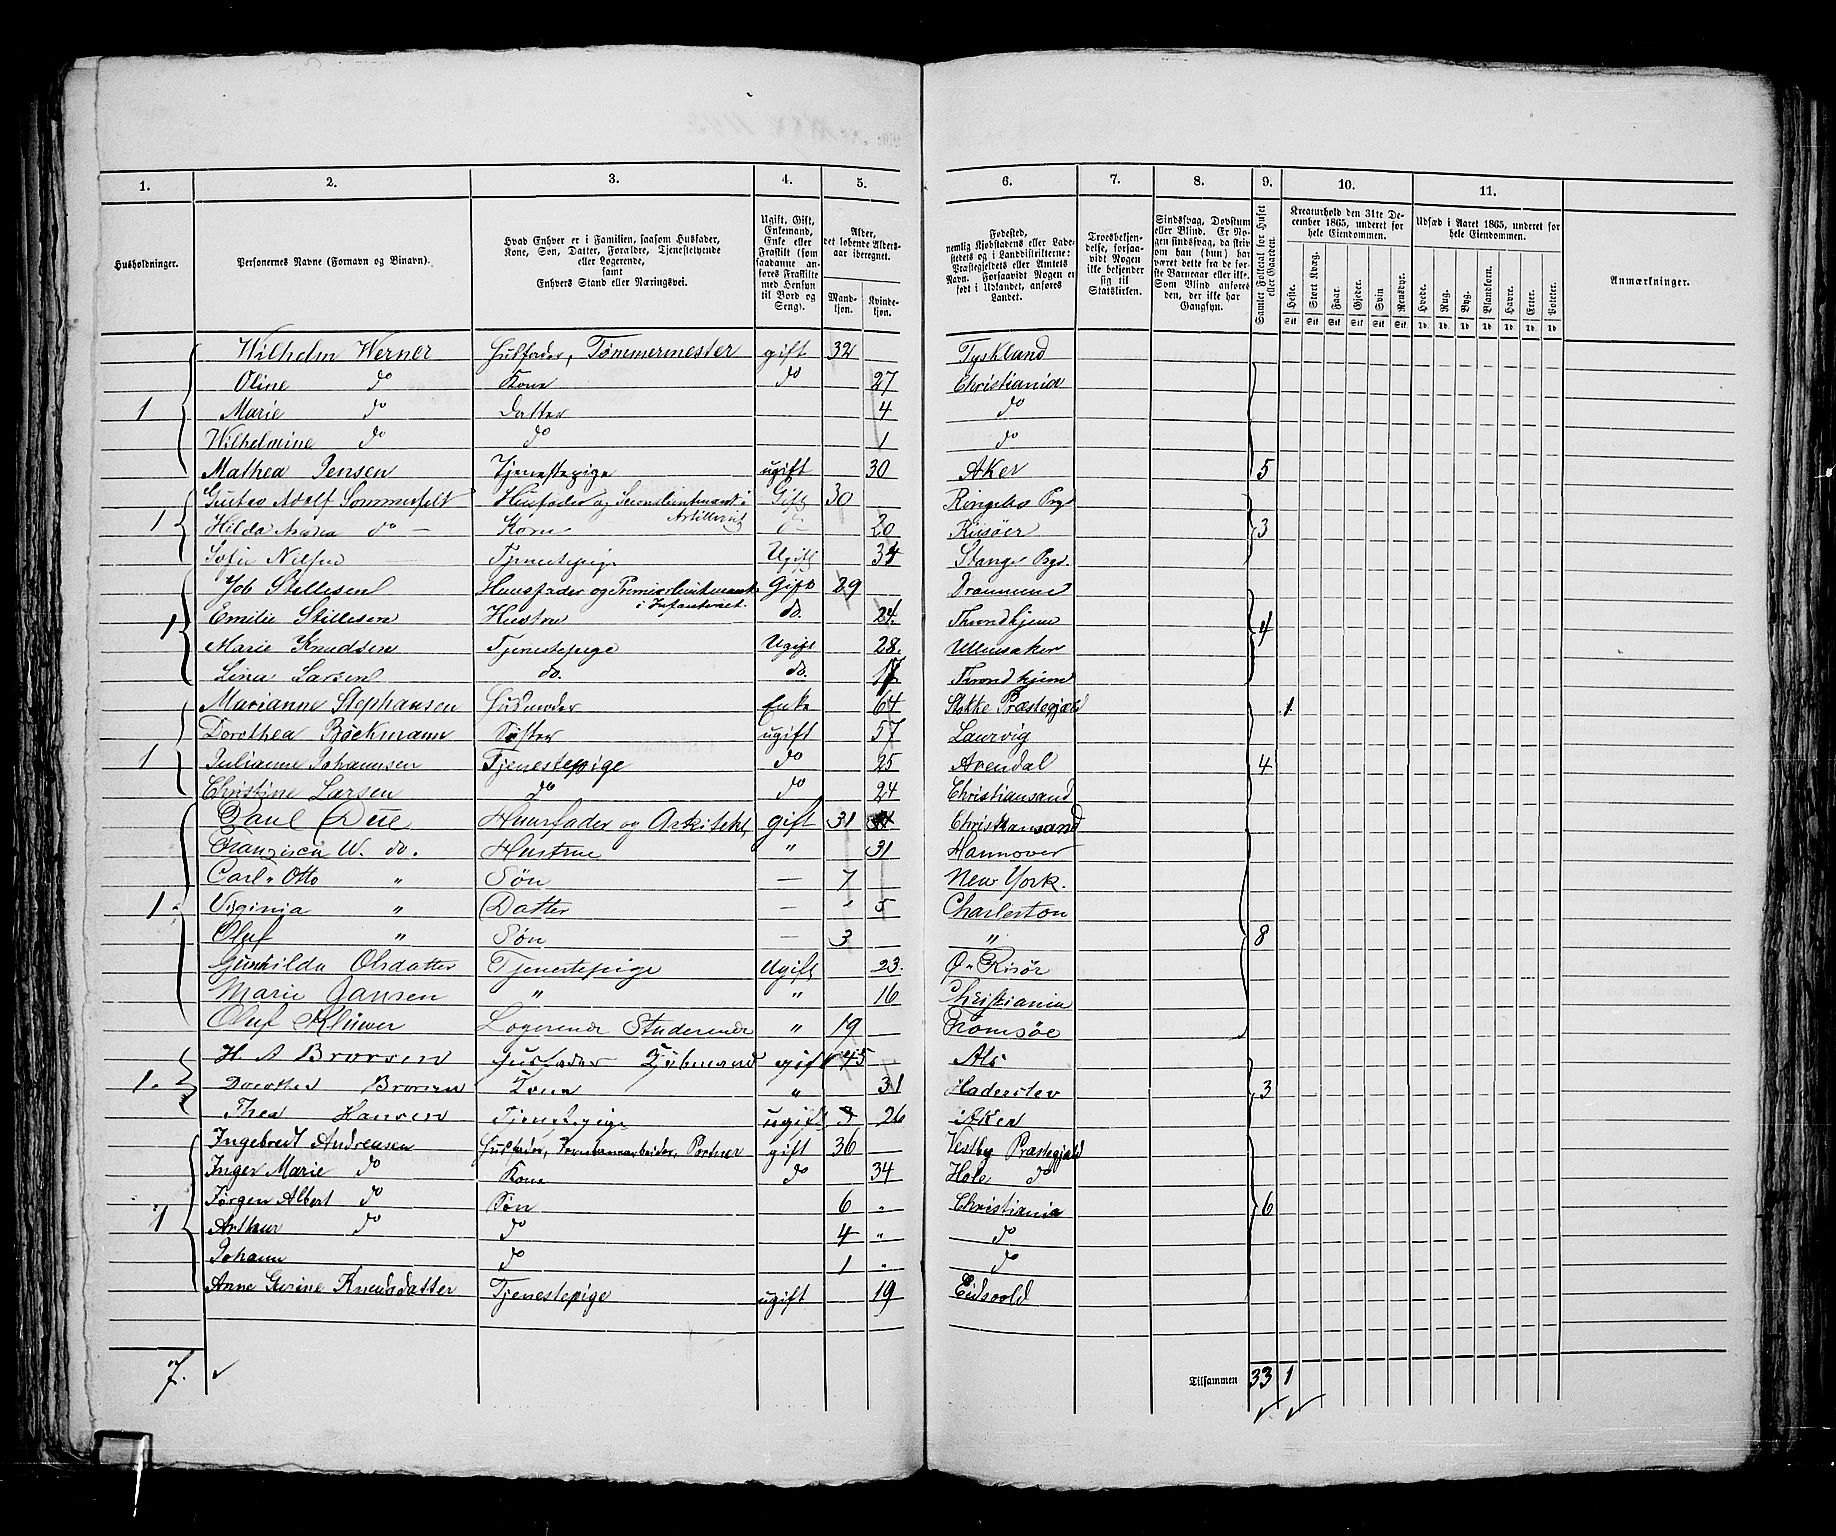 1. 2. 3. 4. 5. 6. 7. 8. 9. 10. 11.
Husholdninger.
Personernes Navne (Fornavn og Binavn).
Hvad Enhver er i Familien, saasom Husfader,
Kone, Søn, Datter, Forældre, Tjenestetyende
eller Logerende,
samt
Enhvers Stand eller Næringsvei.
Ugift, Gift,
Enkemand,
Enke eller
Fraskilt (som
saadanne an-
føres Fraskilte
med Hensyn
til Bord og
Seng).
Alder,
det løbende Alders-
aar iberegnet.
Mand-
kjøn.
Kvinde-
kjøn.
Fødested,
nemlig Kjøbstadens eller Lade-
stedets eller i Landdistrikterne:
Præstegjeldets eller Amtets
Navn. Forsaavidt Nogen er
født i Udlandet, anføres
Landet.
Troesbekjen-
delse, forsaa-
vidt Nogen
ikke bekjender
sig til
Statskirken.
Sindssvag, Døvstum
eller Blind. Er No-
gen sindssvag, da skriv
om han (hun) har
været dette fra de før-
ste Barneaar eller ikke.
Som Blind anføres
den, der ikke har
Gangsyn.
Samlet Folketal for Huset
eller Gaarden.
Kreaturhold den 31te De-
cember 1865, underet for
hele Eiendommen.
Heste. Stort Kvæg. Faar. Gjeder. Svin. Rensdyr.
Stk Stk Stk Stk Stk Stk
Udsæd i Aaret 1865, underet for
hele Eiendommen.
Hvede. Rug. Byg. Blandkorn. Havre. Erter. Poteter.
Td. Td. Td. Td. Td. Td. Td.
Anmærkninger.
Wilhelm Werner Husfader, Tømmermester gift 32 Tyskland
Oline do Kone do 27 Christiania
1 Marie do Datter 4 do
Wilhelmine do do 1 do
Mathea Jensen Tjenestepige ugift 30 Aker 5
Gustav Adolf Sommerfelt Husfader og Secondlieutnant i Gift 30 Ringebo Prgd
Artilleriet
1 Hilda do Kone 20 Risöer 3
Sofie Nilsen Tjenestepige Ugift 34 Stange Prgd.
Job Stillesen Huusfader og Premierlieutnant Gift 29 Drammen
i Infanteriet.
1 Emilie Stillesen Hustru do. 24. Throndhjem 4
Marie Knudsen Tjenestepige Ugift 28. Ullensaker
Lina Larsen do. do. 17 Throndhjem
Marianne Stephansen Husmoder Enke 64 Stokke Præstegjæld 1
Dorothea Böckmann Søster ugift 57 Laurvig
1 Julianne Johannsen Tjenestepige do 25 Arendal 4
Christine Larsen do do 24 Christiansand
Paul Due Huusfader og Arkitekt gift 31 Christiansand
Franzisca W. do. Hustrue " 31 Hannover
Carl Otto " Søn — 7 New York.
1. Virginia " Datter — " 5 Charleston
Oluf " Søn — 3 " 8
Gunhilda Olsdatter Tjenestepige Ugift 23. Ø. Risör
Marie Jansen " " 16 Christiania
Oluf Klüwer Logerende Studerende " 19 Tromsöe
H. A Brorsen Husfader Kjøbmand gift 45 Als
1. Dorothea Brorsen Kone " 31 Haderslev 3
Thea Hansen Tjenestepige ugift 26 Aker
Ingebret Andreasen Husfader, Portner gift 36 Vestby Præstegjæld
Inger Marie do Kone do 34 Hole do
Jørgen Albert do Søn 6 " Christiania 6
1 Arthur do do 4 " do
Johann do 1 " do
Anne Gurine Knudsdatter Tjenestepige ugift 19 Eidsvold
7. Tilsammen 33 1